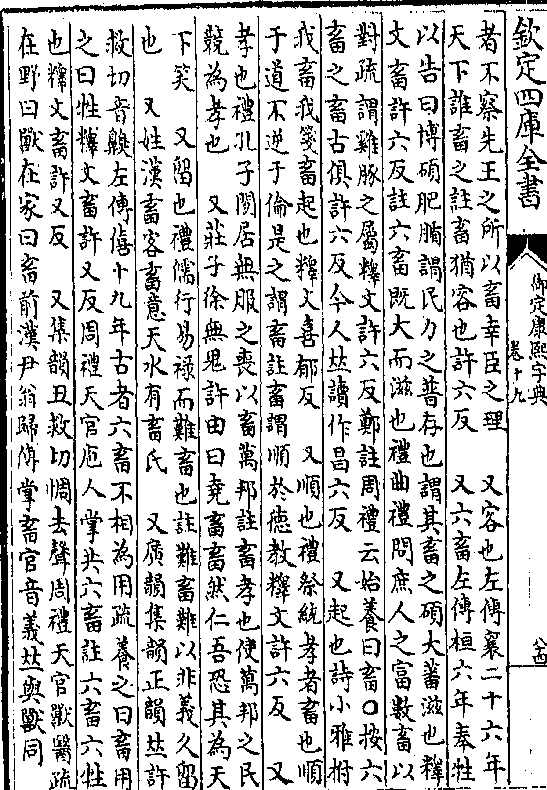 欽定四庫全書
御定康熙字典
卷十九
者不察先王之所以畜幸臣之理　又容也左傳襄二十六年
天下誰畜之註畜猶容也許六反　又六畜左傳桓六年奉牲
以告曰博碩肥腯謂民力之普存也謂其畜之碩大蕃滋也釋
文畜許六反註六畜既大而滋也禮曲禮問庶人之富數畜以
對疏謂雞豚之屬釋文許六反鄭註周禮云始養曰畜〇按六
畜之畜古俱許六反今人𠀤讀作昌六反　又起也詩小雅拊
我畜我箋畜起也釋文喜郁反　又順也禮祭統孝者畜也順
于道不逆于倫是之謂畜註畜謂順於德教釋文許六反　又
孝也禮孔子閒居無服之喪以畜萬邦註畜孝也使萬邦之民
競為孝也　又莊子徐無鬼許由曰堯畜畜然仁吾恐其為天
下笑　又留也禮儒行易祿而難畜也註難畜難以非義久留
也　又姓漢畜客畜意天水有畜氏　又廣韻集韻正韻𠀤許
救切音齅左傳僖十九年古者六畜不相為用疏養之曰畜用
之曰牲釋文畜許又反周禮天官庖人掌共六畜註六畜六牲
也釋文畜許又反　又集韻丑救切惆去聲周禮天官獸醫疏
在野曰獸在家曰畜前漢尹翁歸傳掌畜官音義𠀤與獸同